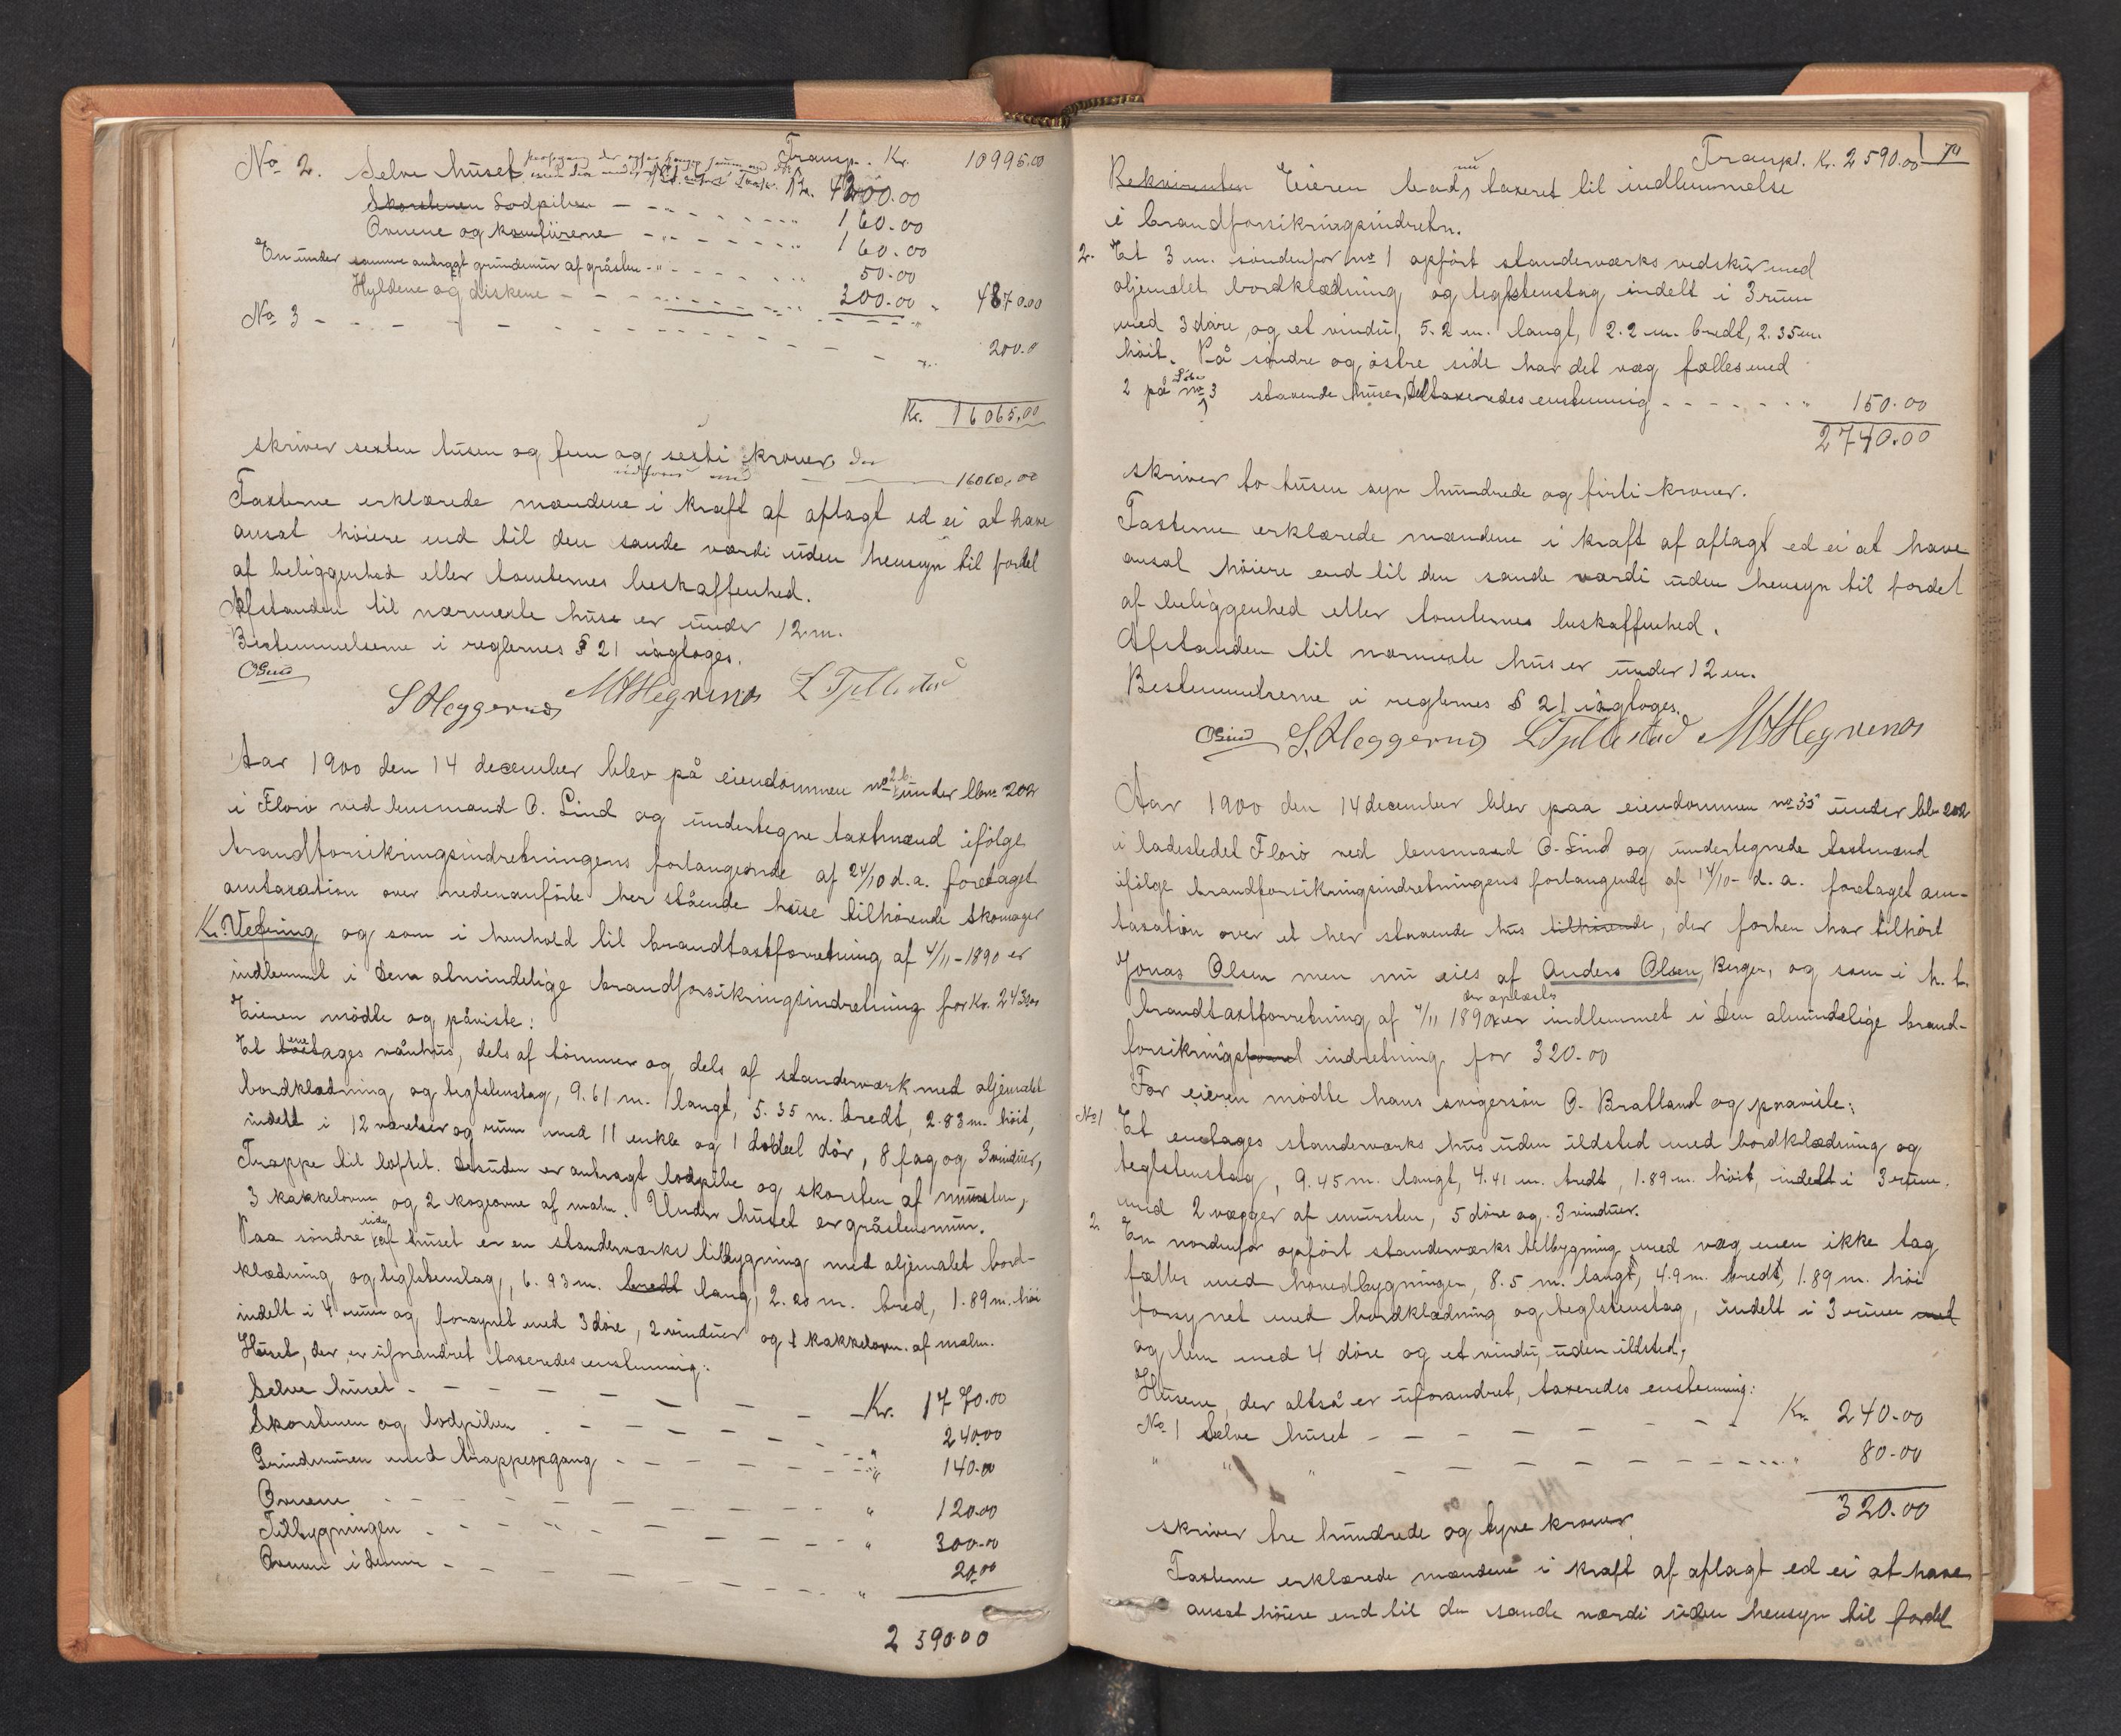 Transp. Kr. 10995.00
No 2. Selve huset Kr. 4200.00
Skorstenen Lodpiben 160.00
Ovnene og komfürene 160.00
En under samme anbragt grundmur af gråsten 50.00
Hyldene og diskene 300.00 4870.00
No 3 200.0
Kr. 16065.00
skriver sexten tusen og fem og sexti kroner, der
udføres med 16060,00
Taxterne erklærede mændene i kraft af aflagt ed ei at have
ansat höiere end til den sande værdi uden hensyn til fordel
af beliggenhed eller tomternes beskaffenhed.
Afstanden til nærmeste huse er under 12 m.
Bestemmelserne i reglernes § 21 iagtoges.
OLind
S Heggernes M H Hegrenes L Tyllestad
Aar 1900 den 14 december blev på eiendommen no 2b under lbno 202
i Florö ved lensmand O. Lind og undertegne taxtmænd ifölge
brandforsikringsindretningens forlangende af 24/10 d.a. foretaget
omtaxation over nedenanförte her stående huse tilhörende skomager
K. Vefring og som i henhold til brandtaxtforretning af 4/11-1890 er
indlemmet i Den almindelige brandforsikringsindretning for Kr. 2430.00
Eieren mödte og påviste:
Et toetages ene vånhus, dels af tömmer og dels af standerværk med oljemalet
bordklædning og teglstenstag, 9.61 m. langt, 5.35 m. bredt, 2.83 m. höit,
indelt i 12 værelser og rum med 11 enkle og 1 dobbel dör, 8 fag og 3 vinduer,
Trappe til loftet. Desuden er anbragt lodpibe og skorsten af mursten,
3 kakkelovne og 2 kogeovne af malm. Under huset er gråstensmur.
Paa söndre side af huset er en standerværks tilbygning med oljemalet bord-
klædning og teglstenstag, 6.93 m. bredt lang, 2.20 m. bred, 1.89 m. höi
indelt i 4 rum og forsynet med 3 döre, 2 vinduer og 1 kakkelovn af malm.
Huset, der er uforandret taxeredes enstemmig:
Selve huset Kr. 1770.00
Skorstenen og lodpiben 240.00
Grundmuren med trappeopgang " 140.00
Ovnene " 120.00
Tilbygningen " 300.00
Ovnen i denne " 20.00
2590.00
Transpt. Kr. 2590.00 70
Rekvirenten Eieren bad nu taxeret til indlemmelse
i brandforsikringsindretn.
2. Et 3 m. söndenfor no 1 opfört standerværks vedskur med
oljemalet bordklædning og teglstenstag indelt i 3 rum
med 3 döre og et vindu, 5.2 m. langt, 2.2 m. bredt, 2.35 m.
höit. På söndre og östre side har det væg fælles med
2 på Löbe no 3 staaende huse, Det taxeredes enstemmig 150.00
2740.00
skriver to tusen syv hundrede og firti kroner.
Taxterne erklærede mændene i kraft af aflagt ed ei at have
ansat höiere end til den sande værdi uden hensyn til fordel
af beliggenhed eller tomternes beskaffenhed.
Afstanden til nærmeste hus er under 12 m.
Bestemmelserne i reglernes § 21 iagtoges.
OLind S. Heggernes L Tyllestad M H Hegrenes
Aar 1900 den 14 december blev paa eiendommen no 35 under lbn 202
i ladestedet Florö ved lensmand O. Lind og undertegnede taxtmænd
ifölge brandforsikringsindretningens forlangende af 14/10- d. a. foretaget om-
taxation over et her staaende hus tilhörende, der forhen har tilhört
Jonas Olsen men nu eies af Anders Olsen, Berger, og som i h. t.
brandtaxtforretning af 4/11 1890 der oplæstes er indlemmet i Den almindelige brand-
forsikrings indretning for 320.00
For eieren mödte hans svigersön O. Bratland og paaviste:
No 1 Et enetages standerværks hus uden ildsted med bordklædning og
teglstenstag, 9.45 m. langt, 4.41 m. bredt, 1.89 m. höit, indelt i 3 rum.
med 2 vægger af mursten, 5 döre og 3 vinduer.
2 En nordenfor opfört standerværks tilbygning med væg men ikke tag
fælles med hovedbygningen, 8.5 m. langt, 4.9 m. bredt, 1.89 m. höi
forsynet med bordklædning og teglstenstag, indelt i 3 rum med
og lem med 4 döre og et vindu, uden ildsted,
Husene, der altså er uforandret, taxeredes enstemmig:
No 1 Selve huset Kr. 240.00
" " " 80.00
320.00
skriver tre hundrede og tyve kroner.
Taxterne erklærede mændene i kraft af aflagt ed ei at have
ansat höiere end til den sande værdi uden hensyn til fordel